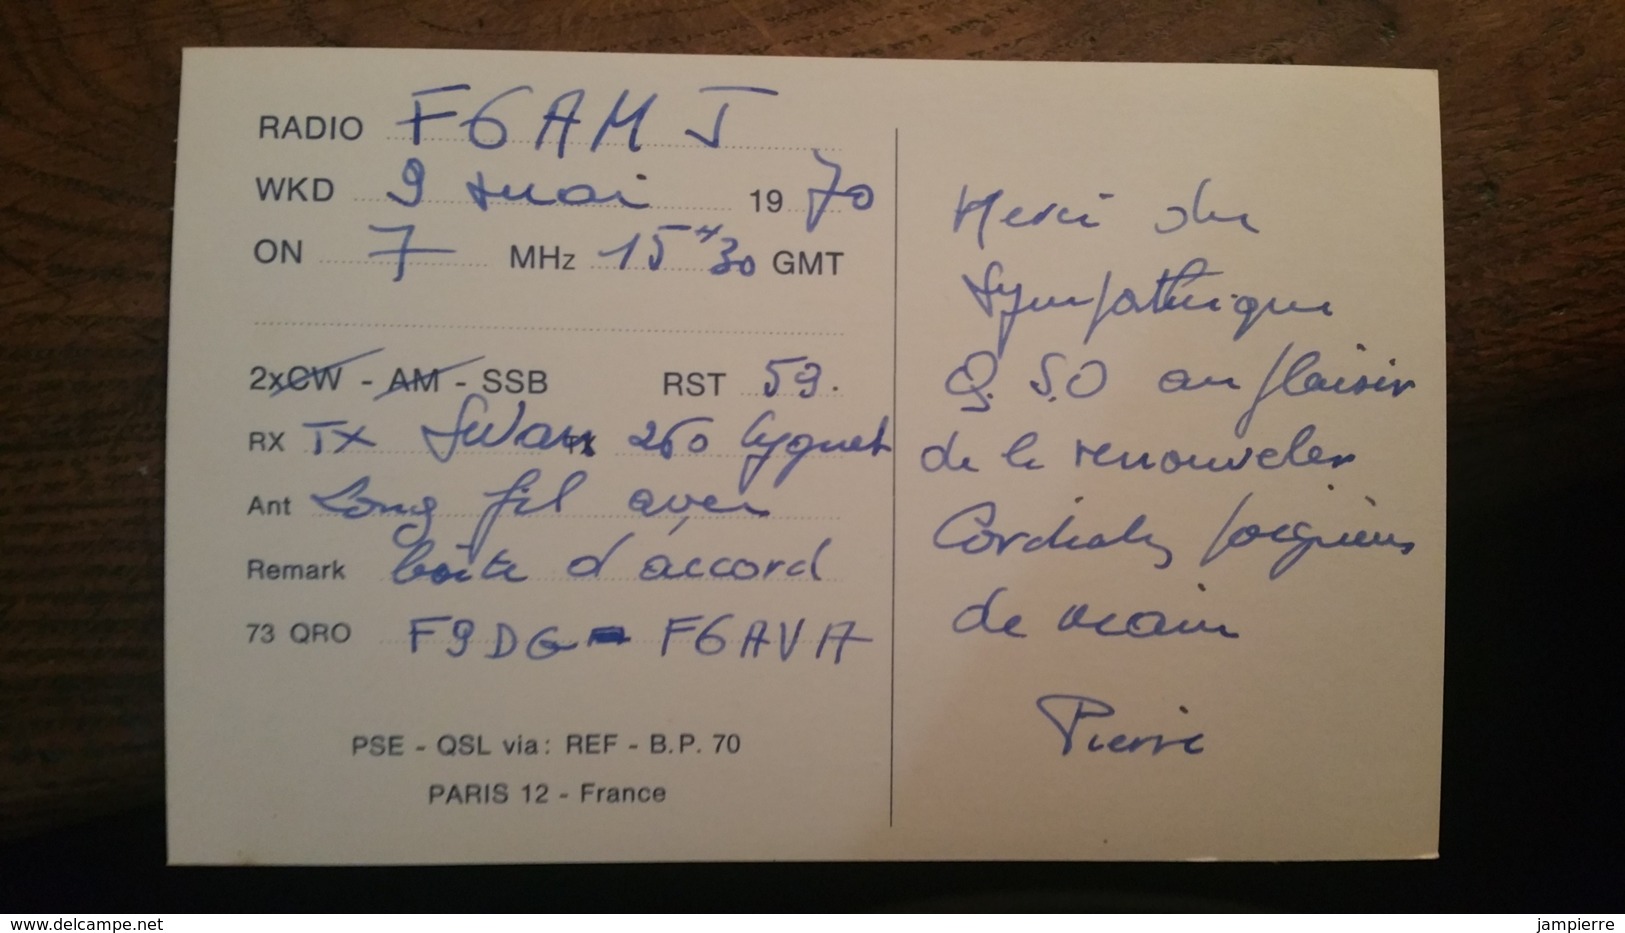 RADIO F6AMJ
WKD 9 mai 1970
ON 7 MHz 15H30 GMT
2xCW - AM - SSB RST 59.
RX TX Swan TX 260 Cygnet
Ant Long fil avec
Remark boîte d'accord
73 QRO F9DG - F6AVA
PSE - QSL via: REF - B.P. 70
PARIS 12 - France
Merci du
Sympathique
Q.S.O au plaisir
de le renouveler
Cordiales poignées
de main
Pierre
www.delcampe.net
jampierre